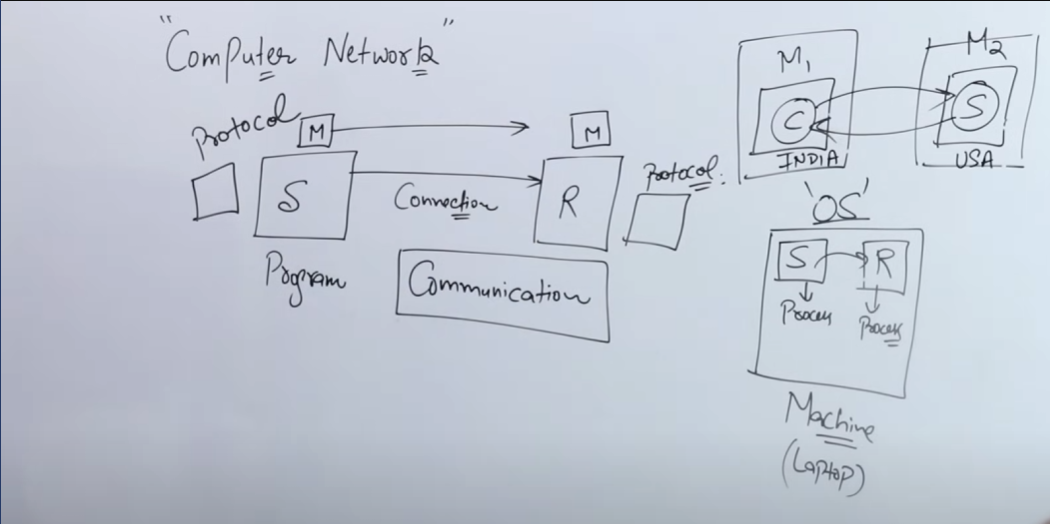 "Computer Network"
Protocol
M
M
S
Connection
R
Protocol:
Program
Communication
M1
M2
C
S
INDIA
USA
'OS'
S
R
Process
Process
Machine
(Laptop)